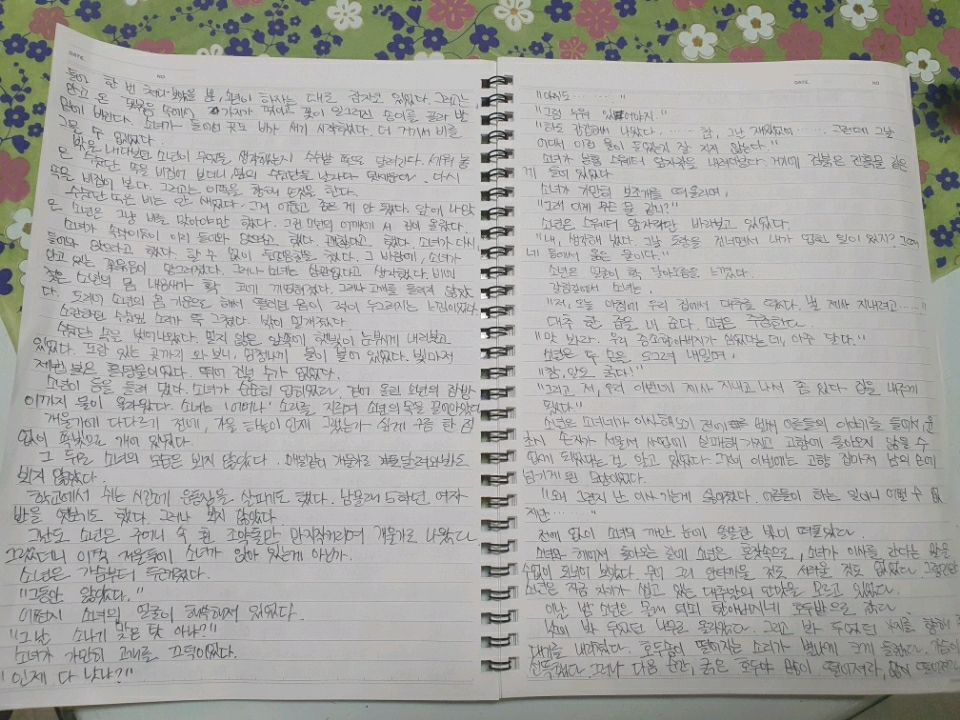 DATE NO
들어 한 번 쳐다보았을 뿐, 소년이 하자는 대로 잠자코 있었다. 그리고는
안고 온 꽃묶음 속에서 가지가 꺾이고 꽃이 일그러진 송이를 골라 발
밑에 버린다. 소녀가 들어선 곳도 비가 새기 시작했다. 더 거기서 비를
그을 수 없었다.
밖을 내다보던 소년이 무엇을 생각했는지 수수밭 쪽으로 달려간다. 세워 놓
은 수숫단 속을 비집어 보더니, 옆의 수숫단을 날라다 덧세운다. 다시
속을 비집어 본다. 그리고는 이쪽을 향해 손짓을 한다.
수숫단 속은 비는 안 새었다. 그저 어둡고 좁은 게 안 됐다. 앞에 나앉
은 소년은 그냥 비를 맞아야만 했다. 그런 소년의 어깨에서 김이 올랐다.
소녀가 속삭이듯이, 이리 들어와 앉으라고 했다. 괜찮다고 했다. 소녀가 다시
들어와 앉으라고 했다. 할 수 없이 뒷걸음질을 쳤다. 그 바람에, 소녀가
안고 있는 꽃묶음이 망그러졌다. 그러나 소녀는 상관없다고 생각했다. 비에
젖은 소년의 몸 내음새가 확 코에 끼얹혀졌다. 그러나 고개를 돌리지 않았
다. 도리어 소년의 몸 기운으로 해서 떨리던 몸이 적이 누그러지는 느낌이었다.
소란하던 수숫잎 소리가 뚝 그쳤다. 밖이 멀개졌다.
수숫단 속을 벗어나왔다. 멀지 않은 앞쪽에 햇빛이 눈부시게 내리붓고
있었다. 도랑 있는 곳까지 와 보니, 엄청나게 물이 불어 있었다. 빛마저
제법 붉은 흙탕물이었다. 뛰어 건널 수가 없었다.
소년이 등을 돌려 댔다. 소녀가 순순히 업히었다. 걷어 올린 소년의 잠방
이까지 물이 올라왔다. 소녀는 '어머나' 소리를 지르며 소년의 목을 끌어안았다.
개울가에 다다르기 전에, 가을 하늘이 언제 그랬는가 싶게 구름 한 점
없이 쪽빛으로 개어 있었다.
그 뒤로 소녀의 모습은 뵈지 않았다. 매일같이 개울가로 달려와봐도
뵈지 않았다.
학교에서 쉬는 시간에 운동장을 살피기도 했다. 남몰래 5학년 여자
반을 엿보기도 했다. 그러나 뵈지 않았다.
그날도 소년은 주머니 속 흰 조약돌만 만지작거리며 개울가로 나왔다.
그랬더니 이쪽 개울둑에 소녀가 앉아 있는게 아닌가.
소년은 가슴부터 두근거렸다.
"그동안 앓았다."
어쩐지 소녀의 얼굴이 해쓱해져 있었다.
"그날 소나기 맞은 탓 아냐?"
소녀가 가만히 고개를 끄덕이었다.
"인제 다 났냐?"
DATE NO
"아직도……"
"그럼 누워 있어야지."
"하도 갑갑해서 나왔다. …… 참, 그날 재밌었어…… 그런데 그날
어디서 이런 물이 들었는지 잘 지지 않는다."
소녀가 분홍 스웨터 앞자락을 내려다본다. 거기에 검붉은 진흙물 같은
게 들어 있었다.
소녀가 가만히 보조개를 떠올리며,
"그래 이게 무슨 물 같니?"
소년은 스웨터 앞자락만 바라보고 있었다.
"내, 생각해 냈다. 그날 도랑을 건너면서 내가 업힌 일이 있지? 그때
네 등에서 옮은 물이다."
소년은 얼굴이 확 달아오름을 느꼈다.
갈림길에서 소녀는,
"저, 오늘 아침에 우리 집에서 대추를 땄다. 낼 제사 지내려고……"
대추 한 줌을 내 준다. 소년은 주춤한다.
"맛 봐라. 우리 증조할아버지가 심었다는데, 아주 달다."
소년은 두 손을 오그려 내밀며,
"참, 알도 굵다!"
"그리고 저, 우리 이번에 제사 지내고 나서 좀 있다 집을 내주게
됐다."
소년은 소녀네가 이사해오기 전에 벌써 어른들의 이야기를 들어서, 윤
초시 손자가 서울서 사업에 실패해가지고 고향에 돌아오지 않을 수
없게 되었다는 걸 알고 있었다. 그것이 이번에는 고향 집마저 남의 손에
넘기게 된 모양이었다.
"왜 그런지 난 이사 가는게 싫어졌다. 어른들이 하는 일이니 어쩔 수 없
지만……"
전에 없이 소녀의 까만 눈에 쓸쓸한 빛이 떠돌았다.
소녀와 헤어져 돌아오는 길에 소년은 혼잣속으로, 소녀가 이사를 간다는 말을
수없이 되뇌어 보았다. 무어 그리 안타까울 것도 서러울 것도 없었다. 그렇건만
소년은 지금 자기가 씹고 있는 대추알의 단맛을 모르고 있었다.
이날 밤 소년은 몰래 덕쇠 할아버지네 호두밭으로 갔다.
낮에 봐 두었던 나무로 올라갔다. 그리고 봐 두었던 가지를 향해
대를 내리쳤다. 호두송이 떨어지는 소리가 별나게 크게 들렸다. 가슴이
선뜩했다. 그러나 다음 순간, 굵은 호두야 많이 떨어져라, 많이 떨어져라